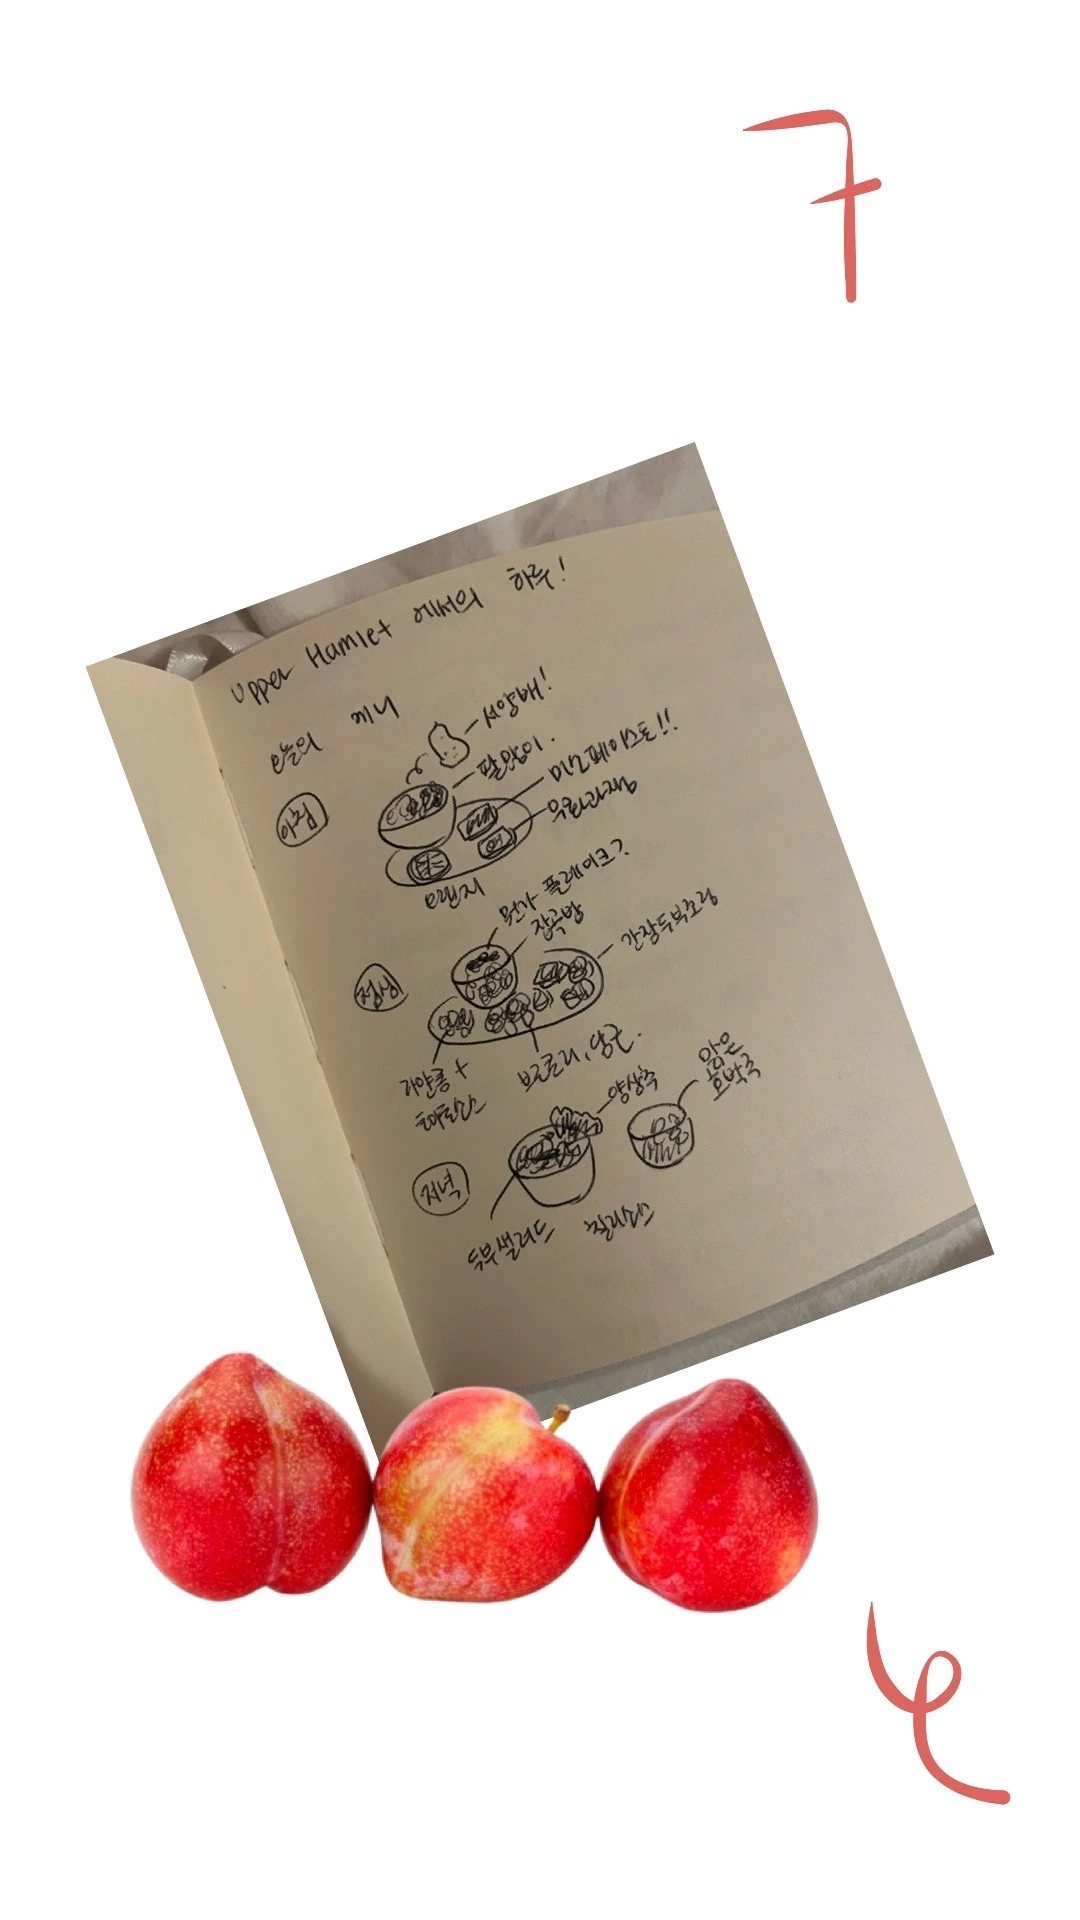 Upper Hamlet 에서의 하루!
오늘의 메뉴
아침
서양배!
팥알이.
미소페이스트!!
유효자재
오렌지
점심
뭔가 플레이크?
잡곡밥
간장두부조림
브로콜리, 당근.
저녁
양상추
맑은
호박국
두부샐러드
칠리소스